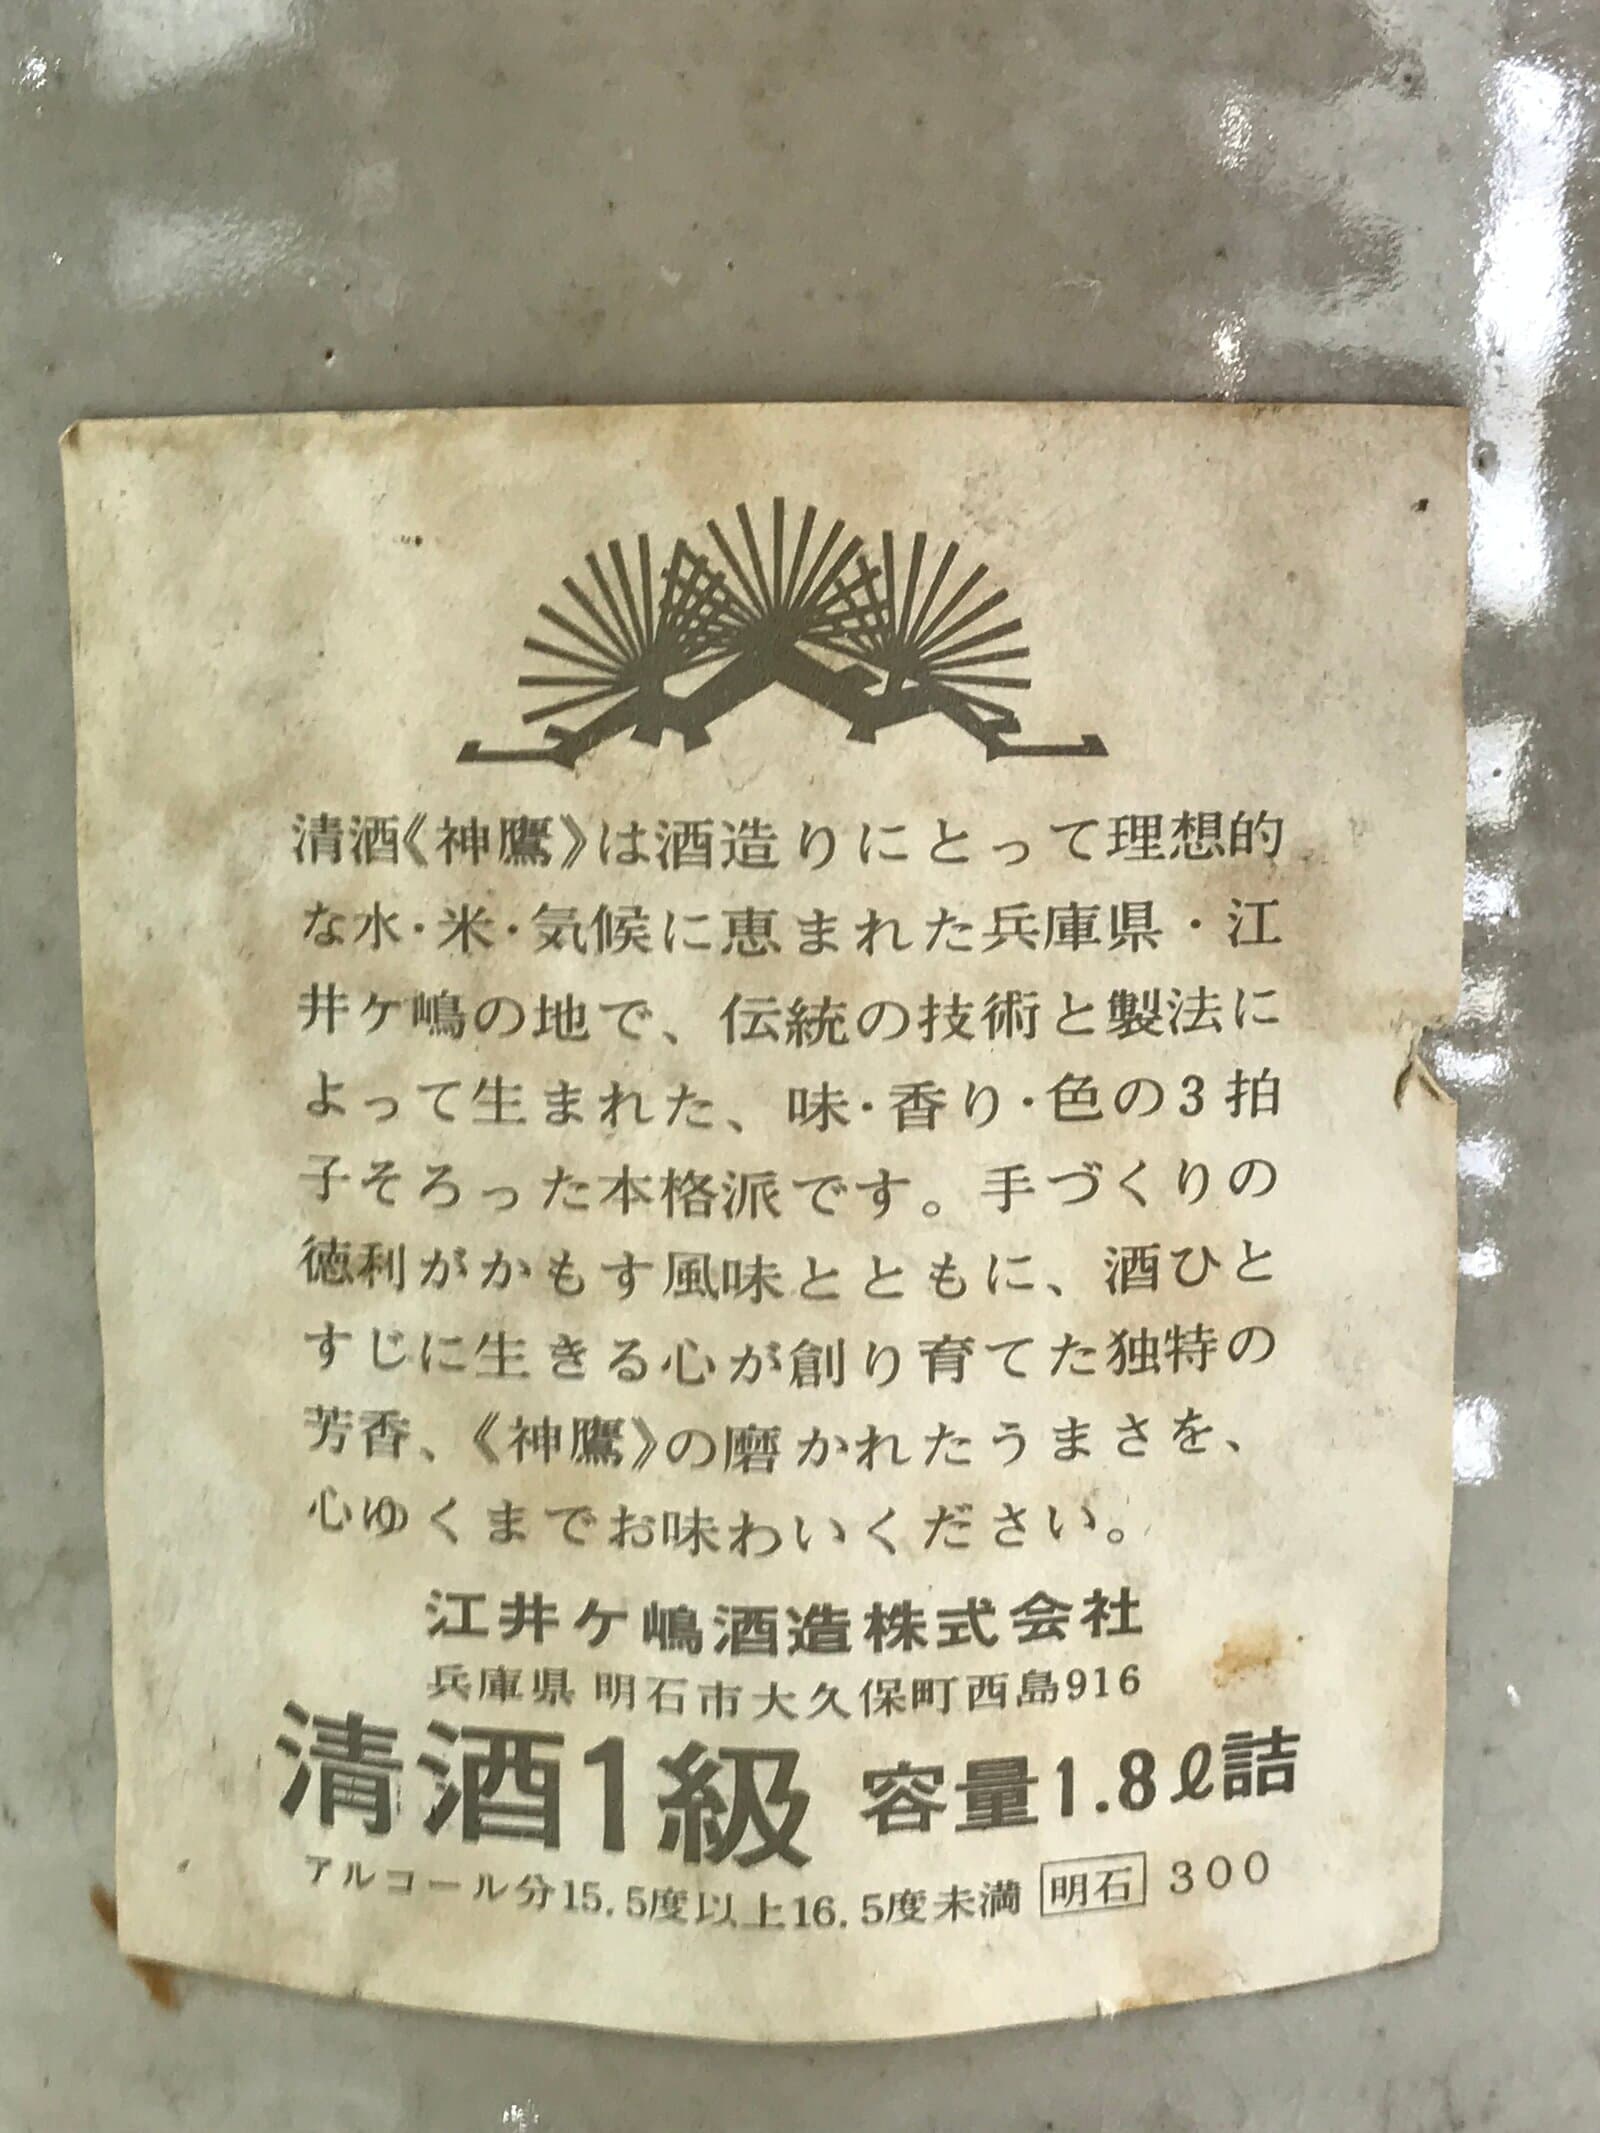 清酒《神鷹》は酒造りにとって理想的
な水・米・気候に恵まれた兵庫県・江
井ケ嶋の地で、伝統の技術と製法に
よって生まれた、味・香り・色の3拍
子そろった本格派です。手づくりの
徳利がかもす風味とともに、酒ひと
すじに生きる心が創り育てた独特の
芳香、《神鷹》の磨かれたうまさを、
心ゆくまでお味わいください。
江井ケ嶋酒造株式会社
兵庫県 明石市大久保町西島916
清酒1級 容量1.8ℓ詰
アルコール分15.5度以上16.5度未満 明石 300